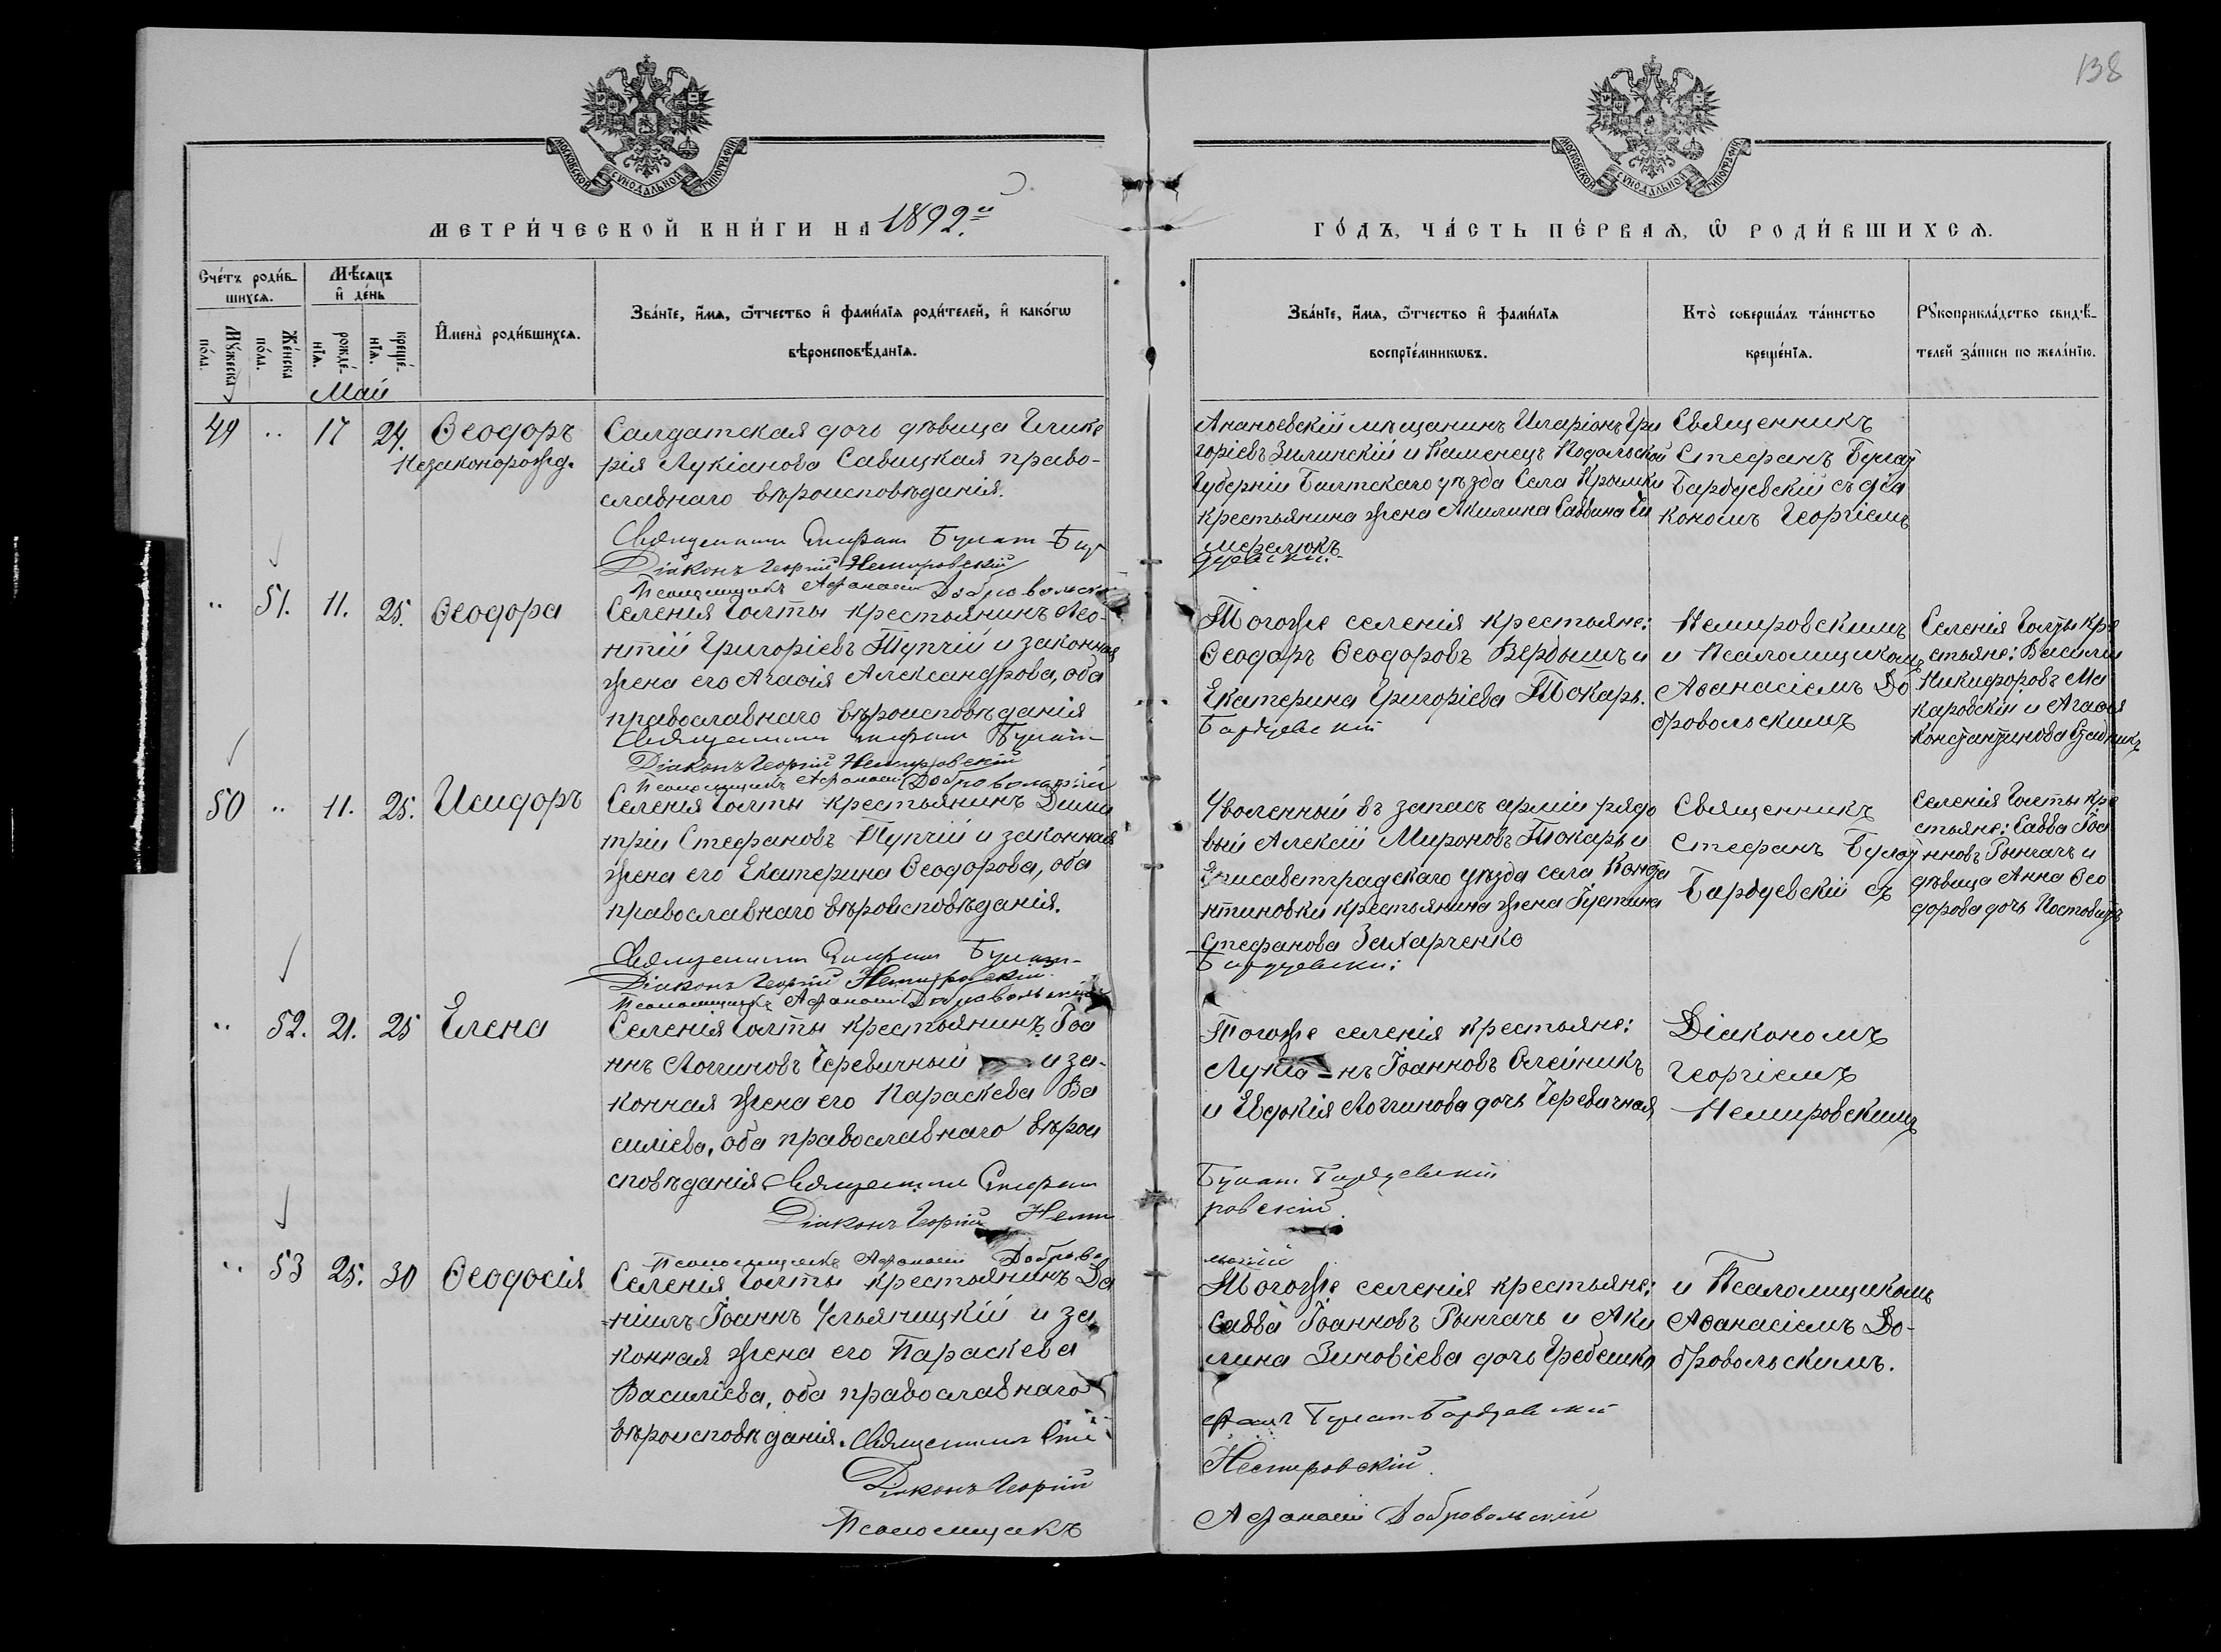 138
МОСКОВСКОЙ СѴНОДАЛЬНОЙ ТИПОГРАФІИ
МОСКОВСКОЙ СѴНОДАЛЬНОЙ ТИПОГРАФІИ
МЕТРИ́ЧЕСКОЙ КНИ́ГИ НА 1892.й
ГО́ДЪ, ЧА́СТЬ ПЕ́РВАѦ, Ѿ РОДИ́ВШИХСѦ.
Сче́тъ роди́вшихсѧ.
Мѣ́сѧцъ и҆ де́нь
Мꙋ́жеска по́ла.
Же́нска по́ла.
рожде́нїѧ.
креще́нїѧ.
И҆мена̀ роди́вшихсѧ.
Зва́нїе, и҆́мѧ, ѻ҆́тчество и҆ фами́лїѧ роди́телей, и҆ како́гѡ
вѣроисповѣ́данїѧ.
Зва́нїе, и҆́мѧ, ѻ҆́тчество и҆ фами́лїѧ
воспрїе́мникѡвъ.
Кто̀ соверша́лъ та́инство
креще́нїѧ.
Рꙋкоприкла́дство свидѣ́-
телей за́писи по жела́нїю.
Май
49 .. 17 24. Ѳеодоръ
Незаконорожд.
Салдатская дочь дѣвица Глике
рія Лукіанова Савицкая право-
славнаго вѣроисповѣданія.
Священникъ Стефанъ Булат-Бар
Діаконъ Георгій Немировскій
Псаломщикъ Афанасій Добровольскій
Ананьевскій мѣщанинъ Иларіонъ Гри
горіевъ Зилинскій и Каменецъ Подольской
Губерніи Балтскаго уѣзда Села Крымки
крестьянина жена Акилина Саввина
Священникъ
Стефанъ Булат
Бардуевскій съ діа
кономъ Георгіемъ
.. 51. 11. 25. Ѳеодора
Селенія Голты крестьянинъ Лео-
нтій Григоріевъ Тупчій и законная
жена его Агаѳія Александрова, оба
православнаго вѣроисповѣданія
Священникъ Стефанъ Булат-
Діаконъ Георгій Немировскій
Псаломщикъ Афанасій Добровольскій
Тогоже селенія крестьяне:
Ѳеодоръ Ѳеодоровъ Вербышъ и
Екатерина Григоріева Токарь.
Бардуевскій
Немировскимъ
и Псаломщикомъ
Аѳанасіемъ До
бровольскимъ
Селенія Голты кре
стьяне: Василій
Никифоровъ Ма
каровскій и Агаѳія
Константинова
50 .. 11. 25. Исидоръ
Селенія Голты крестьянинъ Дими
трій Стефановъ Тупчій и законная
жена его Екатерина Ѳеодорова, оба
православнаго вѣроисповѣданія.
Священникъ Стефанъ Булат-
Діаконъ Георгій Немировскій.
Псаломщикъ Афанасій Добровольскій
Уволенный въ запасъ арміи рядо
вый Алексій Мироновъ Токарь и
Елисаветградскаго уѣзда села Конста
нтиновки крестьянина жена Іустина
Стефанова Захарченко
Бардуевскій
Священникъ
Стефанъ Булат
Бардуевскій съ
Селенія Голты кре
стьяне: Савва Іоа
нновъ Рынгачъ и
дѣвица Анна Ѳео
дорова дочь
.. 52. 21. 25 Елена
Селенія Голты крестьянинъ Іоа
ннъ Логгиновъ Черевичный и за-
конная жена его Параскева Ва
силіева, оба православнаго вѣрои
сповѣданія. Священникъ Стефанъ
Діаконъ Георгій Неми
Псаломщикъ Афанасій Доброво
Тогоже селенія крестьяне:
Лукіанъ Іоанновъ Олейникъ
и Евдокія Логгинова дочь Черевичная
Булат-Бардуевскій
ровскій
льскій
Діакономъ
Георгіемъ
Немировскимъ
.. 53 25. 30 Ѳеодосія
Селенія Голты крестьянинъ Да
ніилъ Іоаннъ Ульяницкій и за
конная жена его Параскева
Василіева, оба православнаго
вѣроисповѣданія. Священникъ Сте
Діаконъ Георгій
Псаломщикъ
Тогоже селенія крестьяне:
Савва Іоанновъ Рынгачъ и Аки
лина Зиновіева дочь Гребешко
фанъ Булат-Бардуевскій
Немировскій
Афанасій Добровольскій
и Псаломщикомъ
Аѳанасіемъ До-
бровольскимъ.